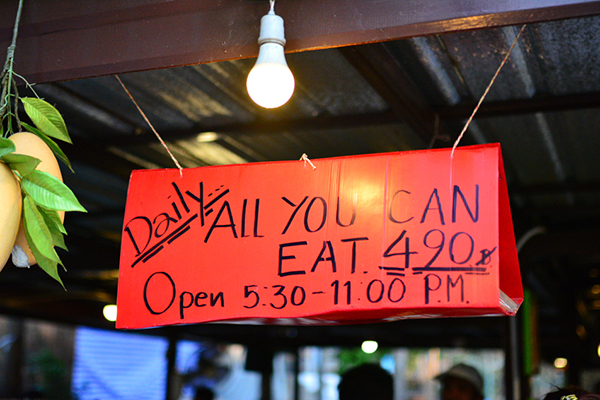 Daily... ALL YOU CAN
EAT. 490฿
Open 5:30-11:00 P.M.